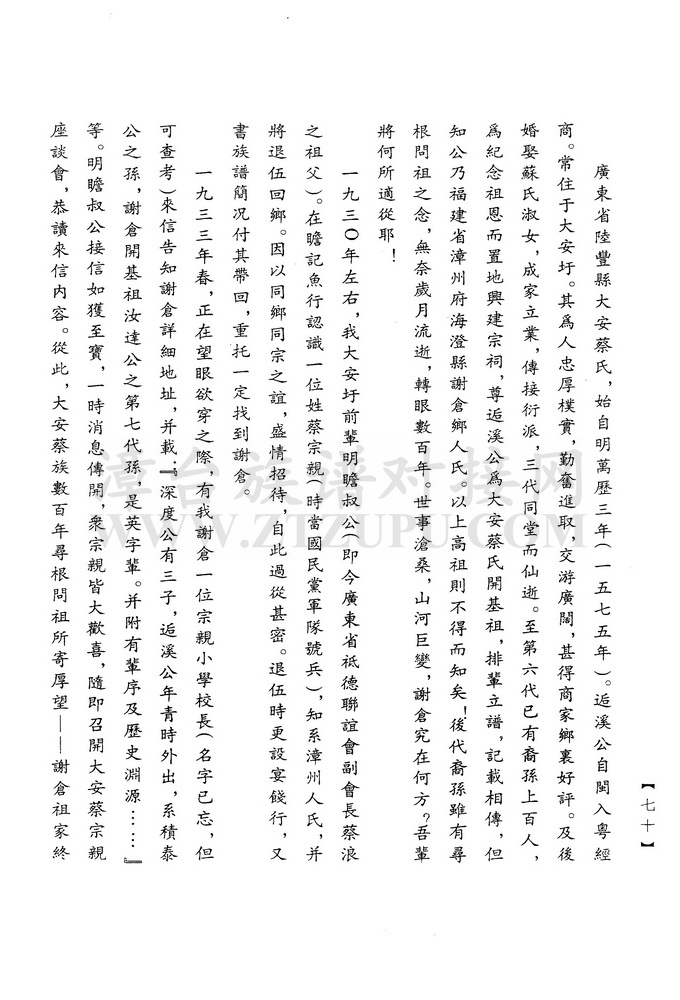 【七十】
廣東省陸豐縣大安蔡氏，始自明萬歷三年(一五七五年)。逅溪公自閩入粵經
商。常住于大安圩。其爲人忠厚樸實，勤奮進取，交游廣闊，甚得商家鄉裏好評。及後
婚娶蘇氏淑女，成家立業，傳接衍派，三代同堂而仙逝。至第六代已有裔孫上百人，
爲紀念祖恩而置地興建宗祠，尊逅溪公爲大安蔡氏開基祖，排輩立譜，記載相傳，但
知公乃福建省漳州府海澄縣謝倉鄉人氏。以上高祖則不得而知矣！後代裔孫雖有尋
根問祖之念，無奈歲月流逝，轉眼數百年。世事滄桑，山河巨變，謝倉究在何方？吾輩
將何所適從耶！
一九三〇年左右，我大安圩前輩明瞻叔公(即今廣東省祗德聯誼會副會長蔡浪
之祖父)。在瞻記魚行認識一位姓蔡宗親(時當國民黨軍隊號兵)，知系漳州人氏，并
將退伍回鄉。因以同鄉同宗之誼，盛情招待，自此過從甚密。退伍時更設宴餞行，又
書族譜簡况付其帶回，重托一定找到謝倉。
一九三三年春，正在望眼欲穿之際，有我謝倉一位宗親小學校長(名字已忘，但
可查考)來信告知謝倉詳細地址，并載：『深度公有三子，逅溪公年青時外出，系積泰
公之孫，謝倉開基祖汝達公之第七代孫，是英字輩。并附有輩序及歷史淵源……』
等。明瞻叔公接信如獲至寶，一時消息傳開，衆宗親皆大歡喜，隨即召開大安蔡宗親
座談會，恭讀來信内容。從此，大安蔡族數百年尋根問祖所寄厚望——謝倉祖家終
漳台族谱对接网
WWW.ZTZUPU.COM